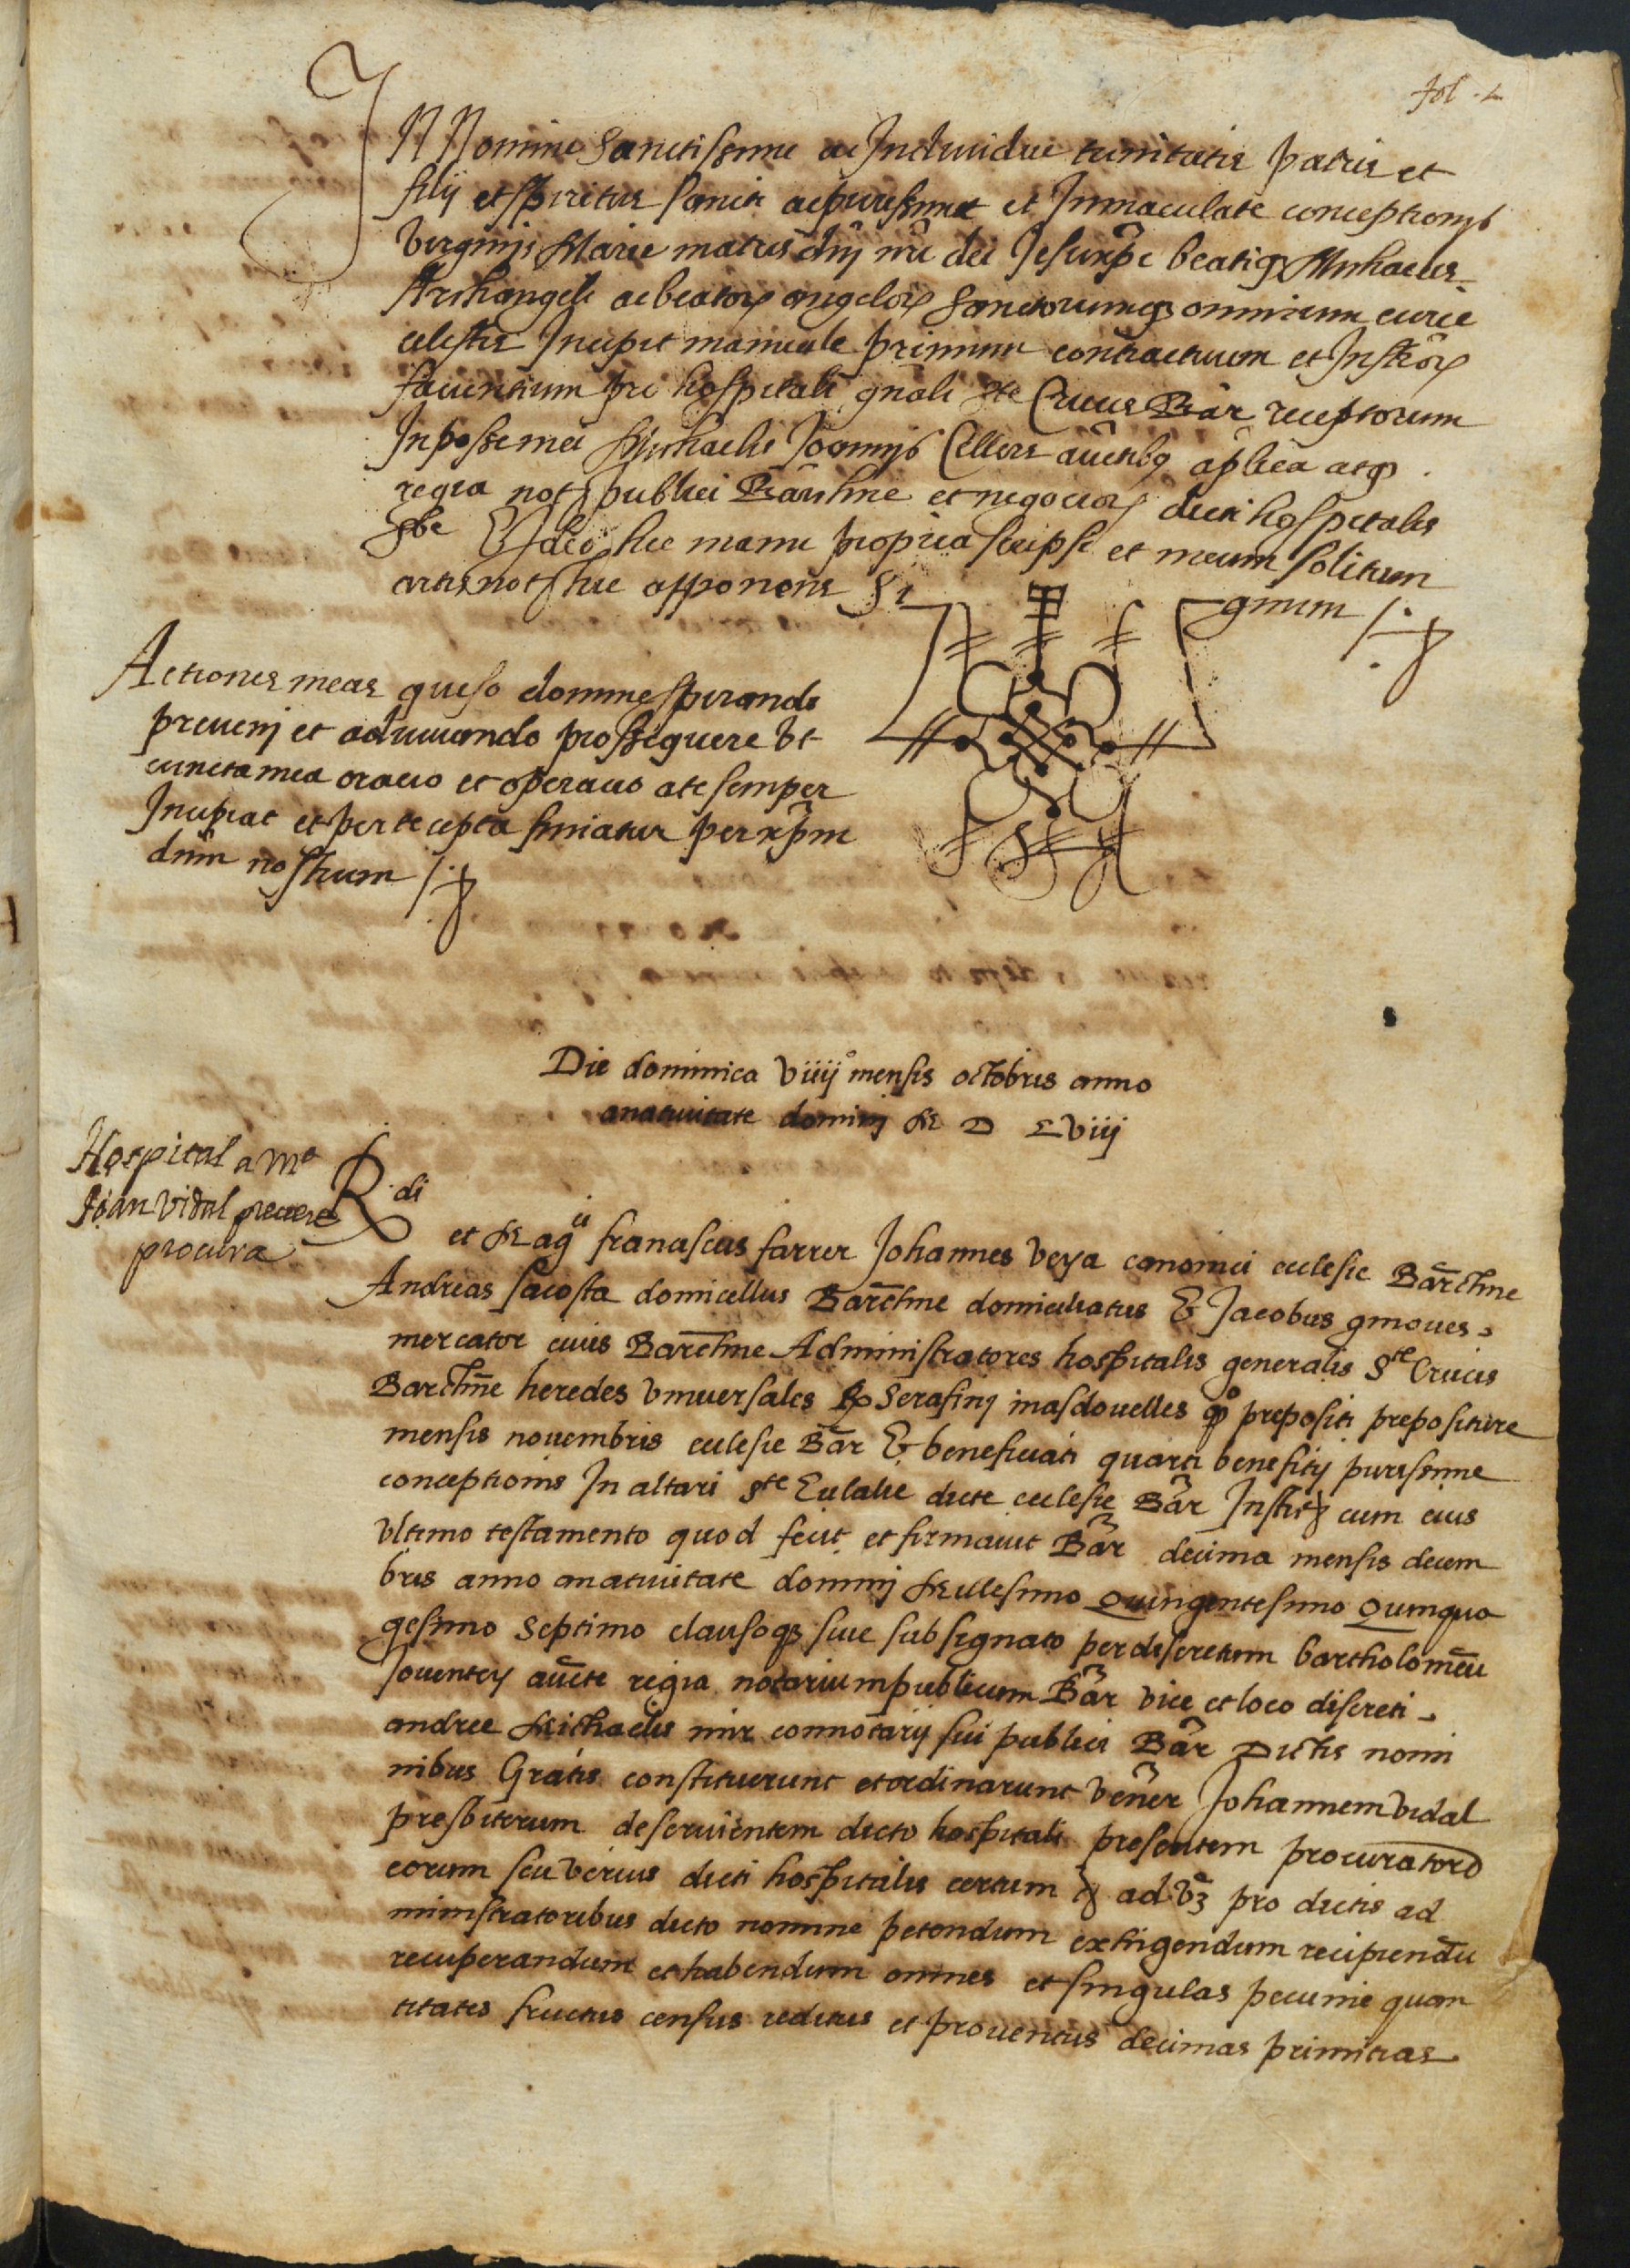 fol. 1
IN Nomine Sanctissime ac Individue trinitatis patris et
filij et spiritus sancti ac purissime et Inmaculate conceptionis
virginis Marie matris dnj nri dei Jesu xpi beatiq Michaelis
Archangeli ac beatoꝝ angeloꝝ Sanctorumq omnium curie
celestis Incipit manuale primum contractuum et Instroꝝ
facientium pro hospitali gnali ste Crucis Bar receptorum
In posse mei Michaelis Joannis Cellers auctibꝫ aplica atq
regia not publici Barchne et negocioꝝ dicti hospitalis
sbe Et ideo hic manu propria scripsi et meum solitum
artis not hic apponens Si gnum
Actiones meas queso domine spirando
prevenj et adiuvando prossequere vt
cuncta mea oracio et operacio a te semper
Incipiat et per te cepta finiatur per xpm
dnm nostrum
Die dominica viiij° mensis octobris anno
a nativitate dominj M D Lviiij
Hospital a Mº
Joan Vidal prevere
procura
R.di
et Mag.ci franciscus farrer Johannes veya canonici ecclesie Barchne
Andreas sacosta domicellus Barchne domiciliatus & Jacobus gmoues
mercator civis Barchne Administratores hospitalis generalis Ste Crucis
Barchne heredes vniversales Serafinj masdouelles qo prepositi prepositure
mensis novembris ecclesie Bar & beneficiati quarti benefitij purissime
conceptionis In altari Ste Eulalie dicte ecclesie Bar Instit cum eius
vltimo testamento quod fecit et firmavit Bar decima mensis decem
bris anno a nativitate dominj Millesimo Quingentesimo Quinqua
gesimo Septimo clausoqꝫ sive subsignato per discretum bartholomeu
Joventeny aucte regia notarium publicum Bar vice et loco discreti
andree Michaelis mir connotarij sui publici Bar Dictis nomi
nibus Gratis constituerunt et ordinarunt vener Johannem vidal
presbiterum deservientem dicto hospitali presentem procuratore
eorum seu verius dicti hospitalis certum & ad vꝫ pro dictis ad
ministratoribus dicto nomine petendum exhigendum recipiendu
recuperandum et habendum omnes et singulas pecunie quan
titates fructus census reditus et proventus decimas primitias